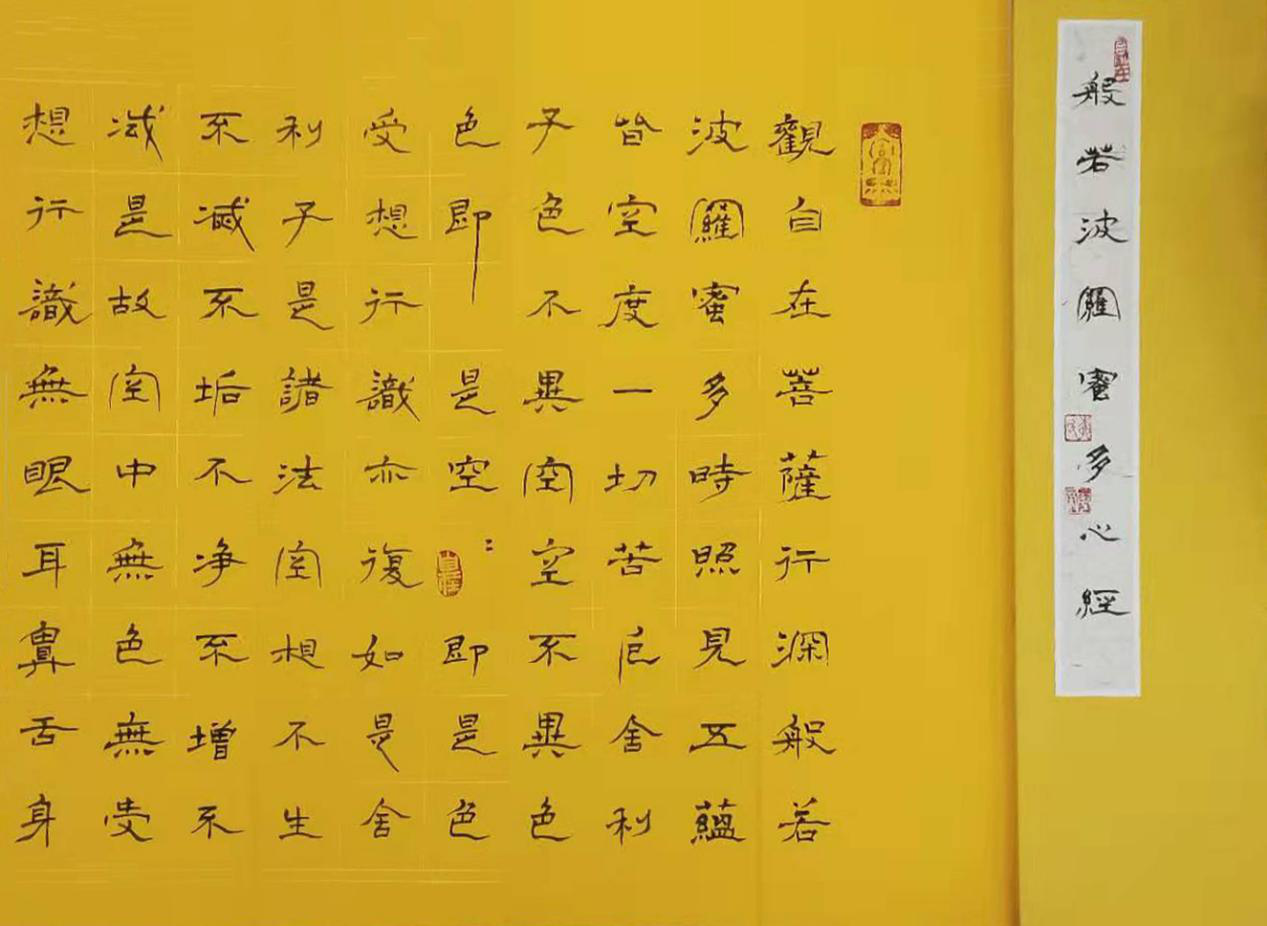 般若波羅蜜多心經
觀自在菩薩行深般若
波羅蜜多時照見五蘊
皆空度一切苦厄舍利
子色不異空空不異色
色即是空：即是色
受想行識亦復如是舍
利子是諸法空相不生
不滅不垢不净不增不
减是故空中無色無受
想行識無眼耳鼻舌身